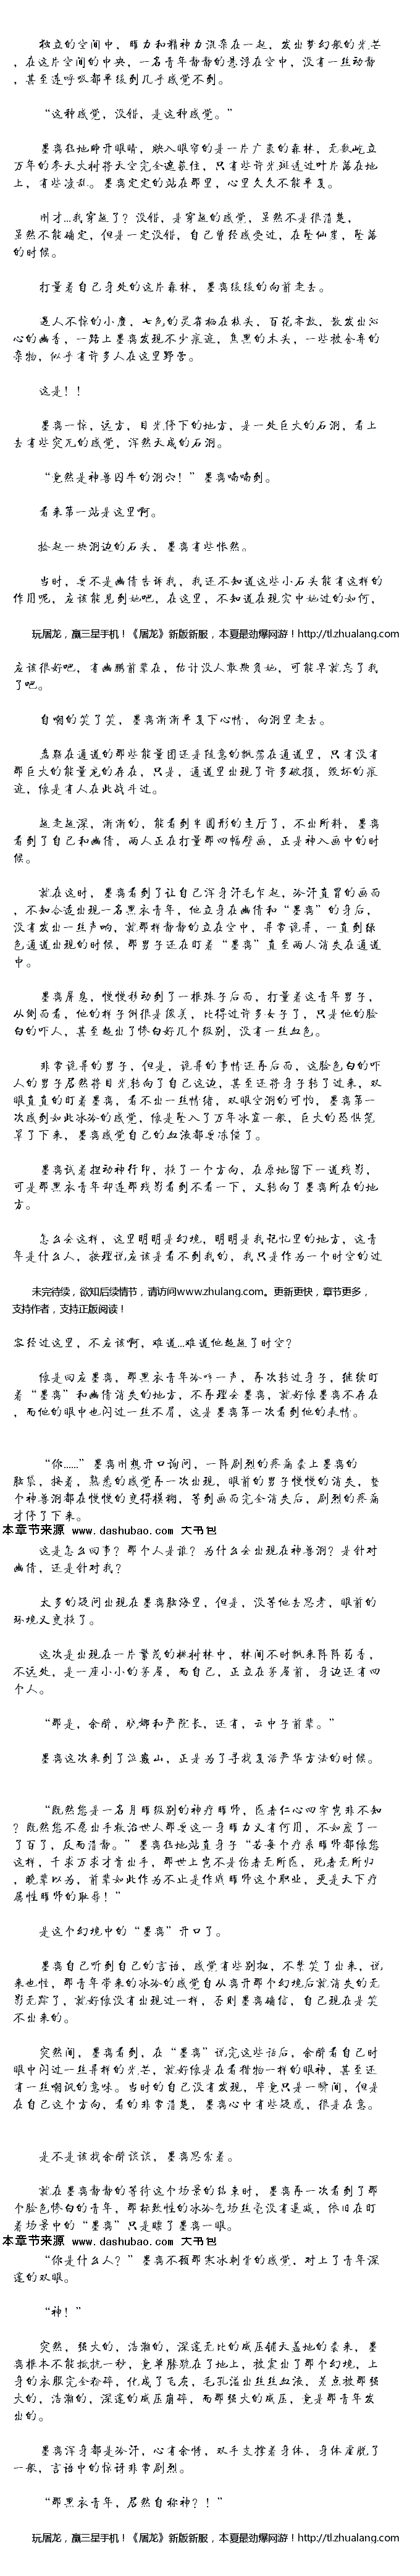 独立的空间中，晖力和精神力混杂在一起，发出梦幻般的光芒
，在这片空间的中央，一名青年静静的悬浮在空中，没有一丝动静
，甚至连呼吸都平缓到几乎感觉不到。
“这种感觉，没错，是这种感觉。”
墨离猛地睁开眼睛，映入眼帘的是一片广袤的森林，无数屹立
万年的参天大树将天空完全遮蔽住，只有些许光斑透过叶片落在地
上，有些凌乱。墨离定定的站在那里，心里久久不能平复。
刚才...我穿越了？没错，是穿越的感觉，虽然不是很清楚，
虽然不能确定，但是一定没错，自己曾经感受过，在坠仙崖，坠落
的时候。
打量着自己身处的这片森林，墨离缓缓的向前走去。
遇人不惊的小鹿，七色的灵雀栖在枝头，百花齐放，散发出沁
心的幽香，一路上墨离发现不少痕迹，焦黑的木头，一些被舍弃的
杂物，似乎有许多人在这里野营。
这是！！
墨离一惊，远方，目光停下的地方，是一处巨大的石洞，看上
去有些突兀的感觉，浑然天成的石洞。
“竟然是神兽囚牛的洞穴！”墨离喃喃到。
看来第一站是这里啊。
捡起一块洞边的石头，墨离有些怅然。
当时，要不是幽倩告诉我，我还不知道这些小石头能有这样的
作用呢，应该能见到她吧，在这里，不知道在现实中她过的如何，
玩屠龙，赢三星手机！《屠龙》新版新服，本夏最劲爆网游！http://tl.zhualang.com
应该很好吧，有幽鹏前辈在，估计没人敢欺负她，可能早就忘了我
了吧。
自嘲的笑了笑，墨离渐渐平复下心情，向洞里走去。
盘踞在通道的那些能量团还是随意的飘荡在通道里，只有没有
那巨大的能量龙的存在，只是，通道里出现了许多破损，毁坏的痕
迹，像是有人在此战斗过。
越走越深，渐渐的，能看到半圆形的主厅了，不出所料，墨离
看到了自己和幽倩，两人正在打量那四幅壁画，正是神入画中的时
候。
就在这时，墨离看到了让自己浑身汗毛乍起，冷汗直冒的画面
，不知合适出现一名黑衣青年，他立身在幽倩和“墨离”的身后，
没有发出一丝声响，就那样静静的立在空中，异常诡异，一直到绿
色通道出现的时候，那男子还在盯着“墨离”直至两人消失在通道
中。
墨离屏息，慢慢移动到了一根珠子后面，打量着这青年男子，
从侧面看，他的样子倒很是俊美，比得过许多女子了，只是他的脸
白的吓人，甚至超出了惨白好几个级别，没有一丝血色。
非常诡异的男子，但是，诡异的事情还再后面，这脸色白的吓
人的男子居然将目光转向了自己这边，甚至还将身子转了过来，双
眼直直的盯着墨离，看不出一丝情绪，双眼空洞的可怕，墨离第一
次感到如此冰冷的感觉，像是坠入了万年冰窟一般，巨大的恐惧笼
罩了下来，墨离感觉自己的血液都要冻僵了。
墨离试着捏动神行印，换了一个方向，在原地留下一道残影，
可是那黑衣青年却连那残影看到不看一下，又转向了墨离所在的地
方。
怎么会这样，这里明明是幻境，明明是我记忆里的地方，这青
年是什么人，按理说应该是看不到我的，我只是作为一个时空的过
未完待续，欲知后续情节，请访问www.zhulang.com。更新更快，章节更多，
支持作者，支持正版阅读！
客经过这里，不应该啊，难道...难道他超越了时空？
像是回应墨离，那黑衣青年冷哼一声，再次转过身子，继续盯
着“墨离”和幽倩消失的地方，不再理会墨离，就好像墨离不存在
，而他的眼中也闪过一丝不屑，这是墨离第一次看到他的表情。
“你......”墨离刚想开口询问，一阵剧烈的疼痛袭上墨离的
脑袋，接着，熟悉的感觉再一次出现，眼前的男子慢慢的消失，整
个神兽洞都在慢慢的变得模糊，等到画面完全消失后，剧烈的疼痛
才停了下来。
本章节来源 www.dashubao.com 大书包
这是怎么回事？那个人是谁？为什么会出现在神兽洞？是针对
幽倩，还是针对我？
太多的疑问出现在墨离脑海里，但是，没等他去思考，眼前的
环境又变换了。
这次是出现在一片繁茂的桃树林中，林间不时飘来阵阵药香，
不远处，是一座小小的茅屋，而自己，正立在茅屋前，身边还有四
个人。
“那是，余醉，欣娜和严院长，还有，云中子前辈。”
墨离这次来到了泣巅山，正是为了寻找复活严华方法的时候。
“既然您是一名月晖级别的神疗晖师，医者仁心四字岂非不知
？既然您不愿出手救治世人那要这一身晖力又有何用，不如废了一
了百了，反而清静。”墨离猛地站直身子“若每个疗系晖师都像您
这样，千求万求才肯出手，那世上岂不是伤者无所医，死者无所归
，晚辈以为，前辈如此作为不止是作贱晖师这个职业，更是天下疗
属性晖师的耻辱！”
是这个幻境中的“墨离”开口了。
墨离自己听到自己的言语，感觉有些别扭，不禁笑了出来，说
来也怪，那青年带来的冰冷的感觉自从离开那个幻境后就消失的无
影无踪了，就好像没有出现过一样，否则墨离确信，自己现在是笑
不出来的。
突然间，墨离看到，在“墨离”说完这些话后，余醉看自己时
眼中闪过一丝异样的光芒，就好像是在看猎物一样的眼神，甚至还
有一丝嘲讽的意味。当时的自己没有发现，毕竟只是一瞬间，但是
在自己这个方向，看的非常清楚，墨离心中有些疑惑，很是在意。
是不是该找余醉谈谈，墨离思索着。
就在墨离静静的等待这个场景的结束时，墨离再一次看到了那
个脸色惨白的青年，那标致性的冰冷气场丝毫没有递减，依旧在盯
着场景中的“墨离”只是瞟了墨离一眼。
本章节来源 www.dashubao.com 大书包
“你是什么人？”墨离不顾那寒冰刺骨的感觉，对上了青年深
邃的双眼。
“神！”
突然，强大的，浩瀚的，深邃无比的威压铺天盖地的袭来，墨
离根本不能抵抗一秒，竟单膝跪在了地上，被震出了那个幻境，上
身的衣服完全粉碎，化成了飞灰，毛孔溢出丝丝血液，差点被那强
大的，浩瀚的，深邃的威压崩碎，而那强大的威压，竟是那青年发
出的。
墨离浑身都是冷汗，心有余悸，双手支撑着身体，身体虚脱了
一般，言语中的惊讶非常剧烈。
“那黑衣青年，居然自称神？！”
玩屠龙，赢三星手机！《屠龙》新版新服，本夏最劲爆网游！http://tl.zhualang.com